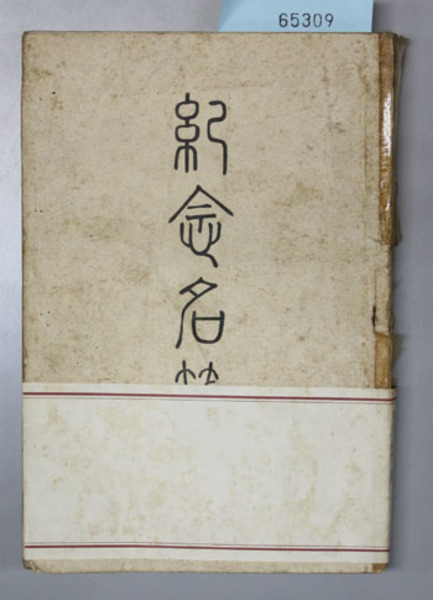 65309
紀念名